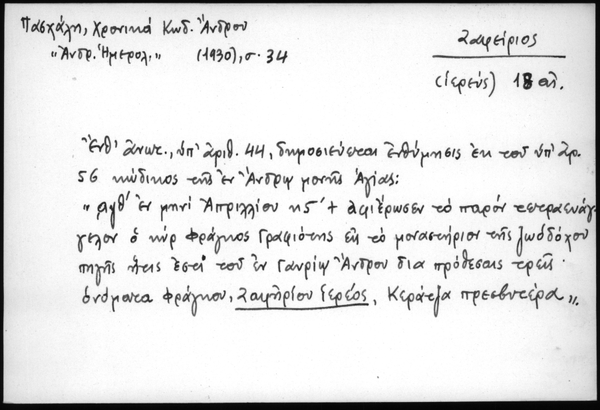 Πασχάλη, Χρονικά Κωδ. Ἄνδρου
"Ἀνδρ. Ἡμερολ." (1930), σ. 34
Σαφείριος
(ἱερεύς) 18 αἰ.
Ἔνθ' ἀνωτ., ὑπ' ἀριθ. 44, δημοσιεύεται ἐνθύμησις ἐκ τοῦ ὑπ' ἀρ.
56 κώδικος τῆς ἐν Ἄνδρῳ μονῆς Ἁγίας:
" ἐν μηνί Ἀπριλλίου κς' + ἀφιέρωσεν τό παρόν τετραευάγ
γελον ὁ κύρ Φράγκος Γραφιότης εἰς τό μοναστήριον τῆς ζωόδόχου
πηγῆς ἥτις ἐστί τοῦ ἐν Γαυρίῳ Ἄνδρου δια πρόθεσαις τρεῖς·
ὀνόματα Φράγκου, Σαφηρίου ἱερέος, Κεράτζα πρεσβυτέρα".